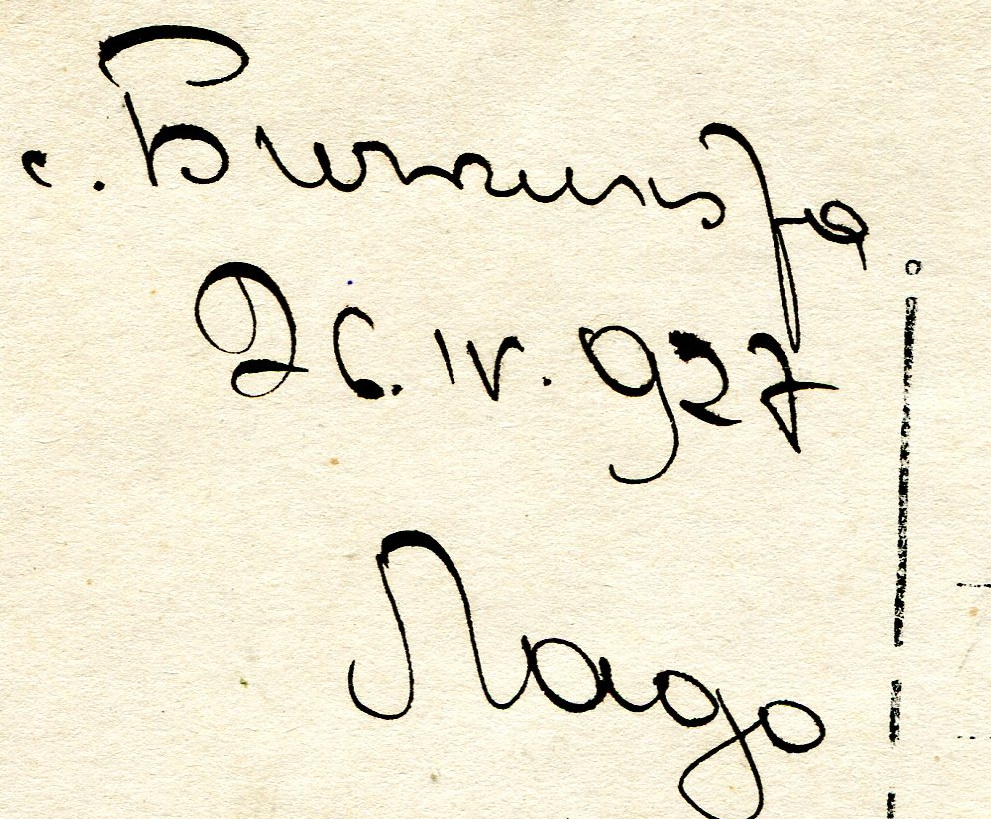 с.
26.IV.927
Ладо